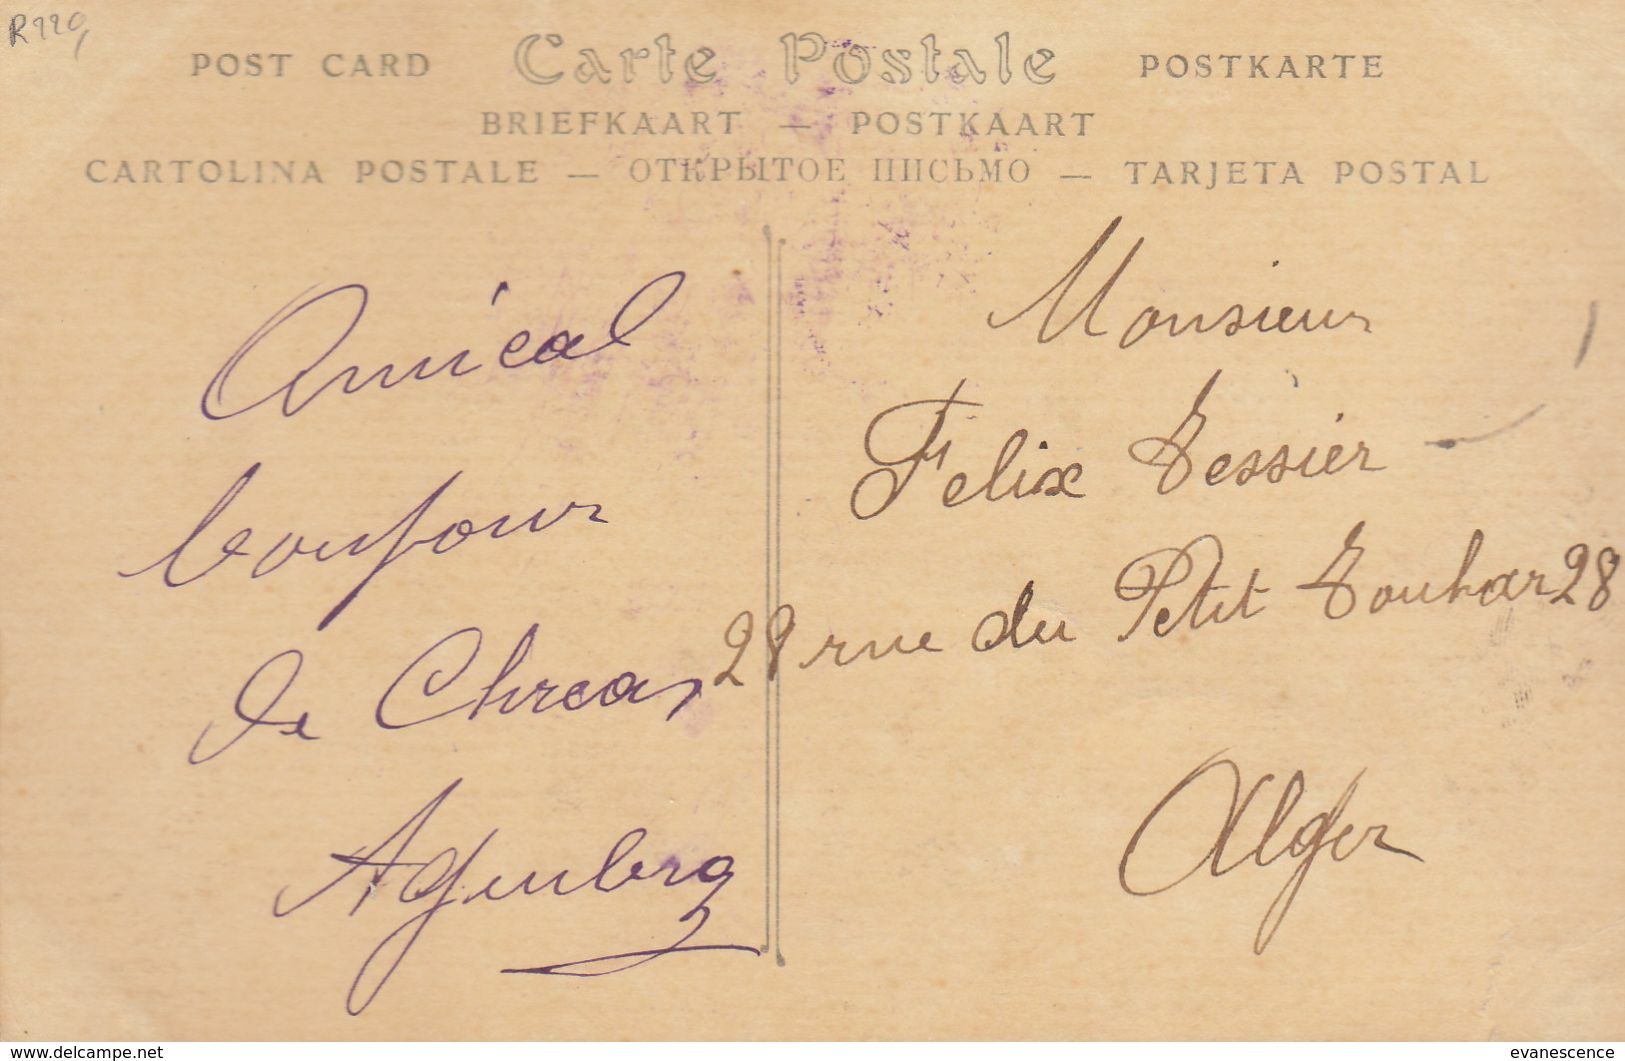 POST CARD Carte Postale POSTKARTE
BRIEFKAART — POSTKAART
CARTOLINA POSTALE — ОТКРЫТОЕ ПИСЬМО — TARJETA POSTAL
Amical
bonjour
de Chrea
Monsieur
Felix Tessier
28 rue du Petit Touhar 28
Alger
www.delcampe.net
evanescence